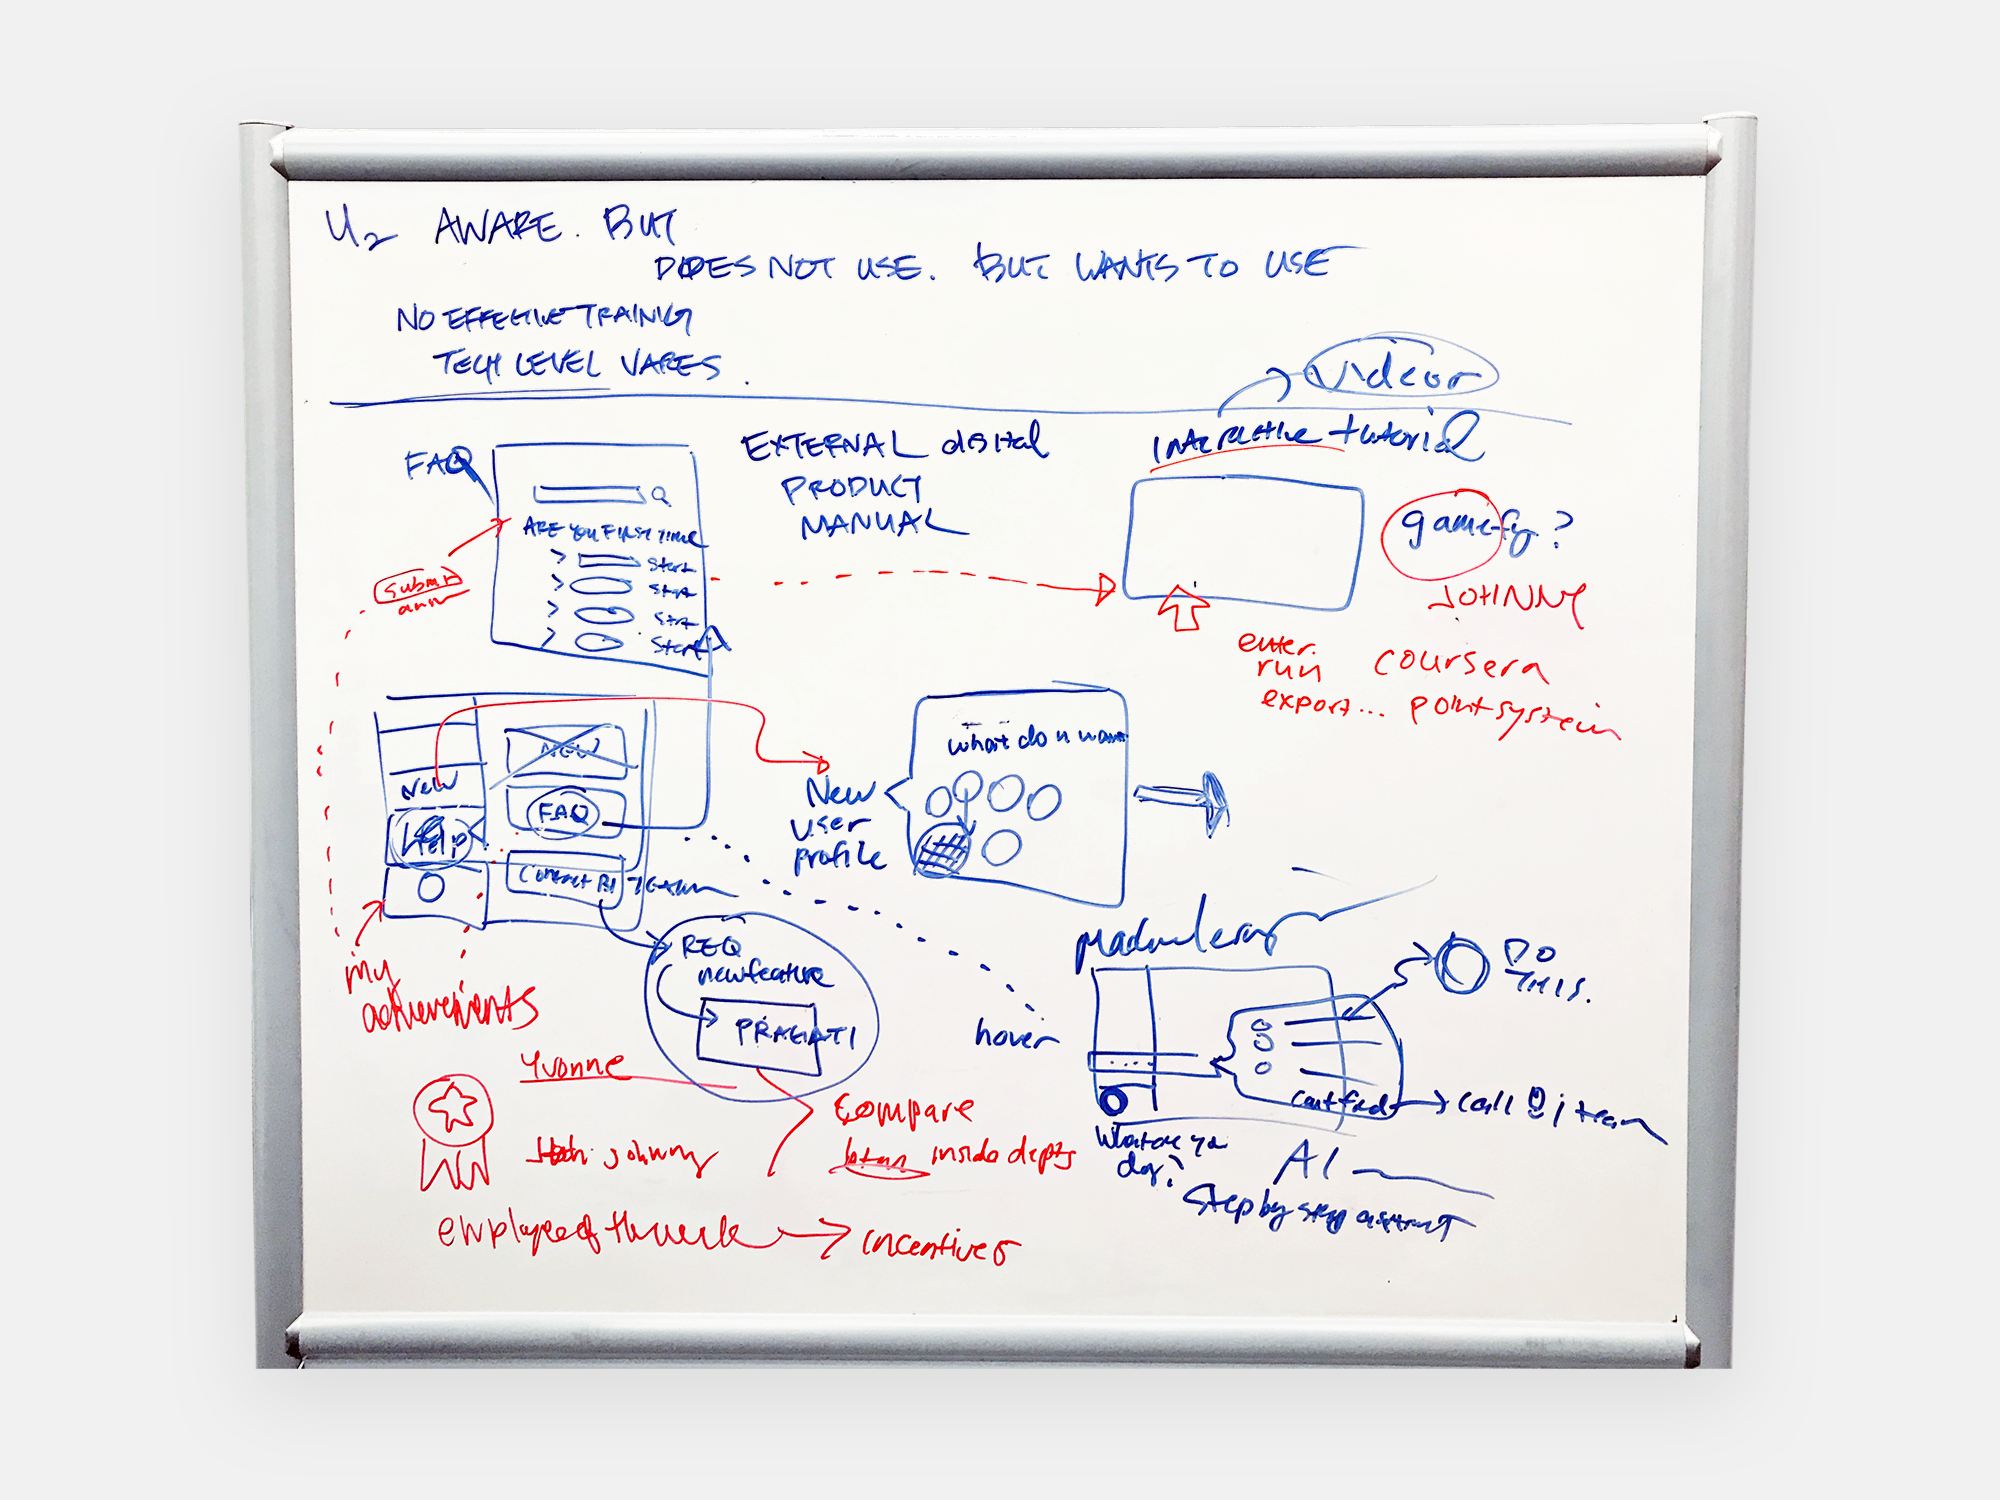 U2 AWARE. BUT
DOES NOT USE. BUT WANTS TO USE
NO EFFECTIVE TRAINIG
TECH LEVEL VARES.
Videos
FAQ
ARE YOU FIRST TIME
> Start
> Start
> Start
> Start
submit
EXTERNAL digital
PRODUCT
MANUAL
Interactive tutorial
gamify?
JOHNNY
enter.
run
export...
coursera
point system
NEW
Help
NEW
FAQ
Contact BI TEAM
New
user
profile
what do u want
my
achievements
REQ
new feature
PRAGATI
hover
DO
THIS.
call BI team
What are ya
doy?
AI
Step by step
Yvonne
johnny
Compare
inside depts
employee of the week → incentives